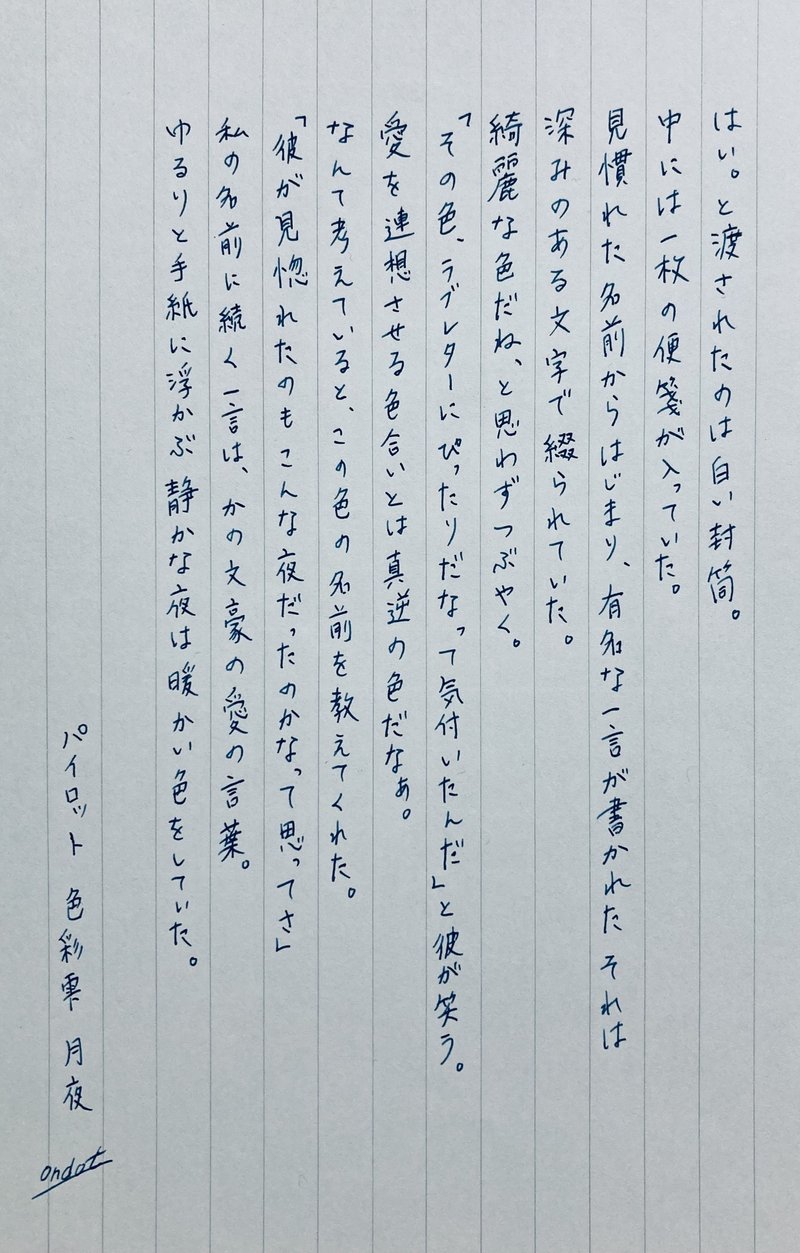 はい。と渡されたのは白い封筒。
中には一枚の便箋が入っていた。
見慣れた名前からはじまり、有名な一言が書かれた それは
深みのある文字で綴られていた。
綺麗な色だね、と思わずつぶやく。
「その色、ラブレターにぴったりだなって気付いたんだ」と彼が笑う。
愛を連想させる色合いとは真逆の色だなぁ。
なんて考えていると、この色の名前を教えてくれた。
「彼が見惚れたのもこんな夜だったのかなって思ってさ」
私の名前に続く一言は、かの文豪の愛の言葉。
ゆるりと手紙に浮かぶ静かな夜は暖かい色をしていた。
パイロット 色彩雫 月夜
ondot